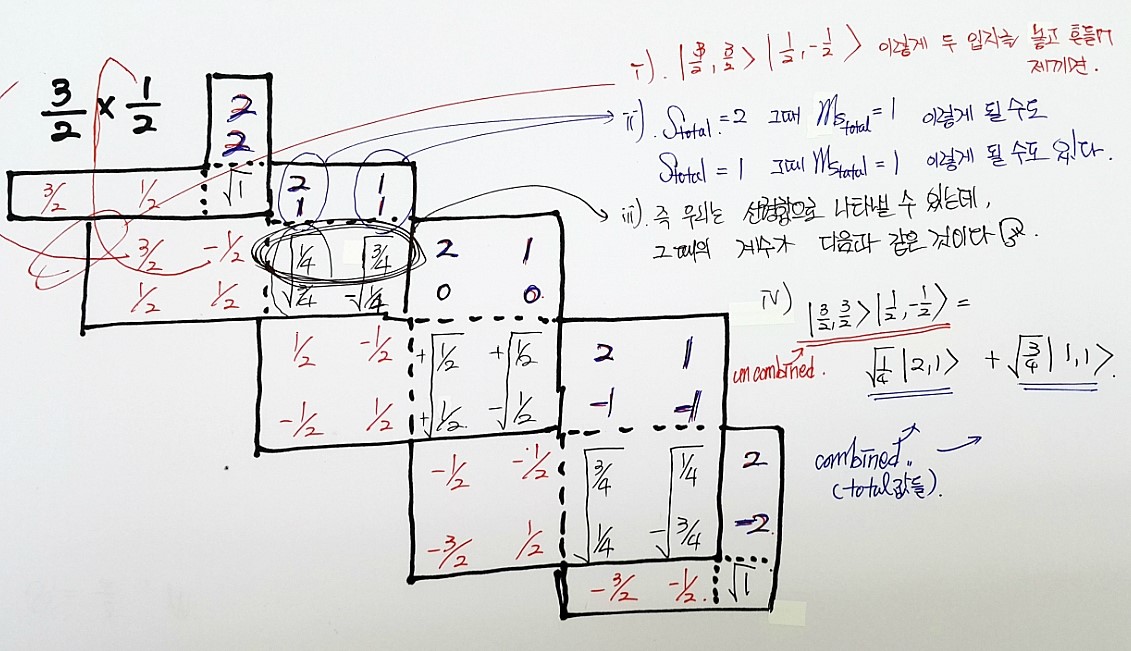 3/2 × 1/2
2
2
3/2 1/2 √1 2 1
1 1
3/2 -1/2 √1/4 √3/4 2 1
1/2 1/2 √3/4 -√1/4 0 0
1/2 -1/2 +√1/2 +√1/2 2 1
-1/2 1/2 +√1/2 -√1/2 -1 -1
-1/2 -1/2 √3/4 √1/4 2
-3/2 1/2 √1/4 -√3/4 -2
-3/2 -1/2 √1
i). |3/2, 3/2> |1/2, -1/2> 이렇게 두 입자를 놓고 흔들어
제끼면.
ii). Stotal = 2 그때 mstotal = 1 이렇게 될 수도
Stotal = 1 그때 mstotal = 1 이렇게 될 수도 있다.
iii). 즉 우리는 선형합으로 나타낼 수 있는데,
그때의 계수가 다음과 같은 것이다
iv) |3/2, 3/2> |1/2, -1/2> =
√1/4 |2,1> + √3/4 |1,1>.
uncombined.
combined.
(total값들).